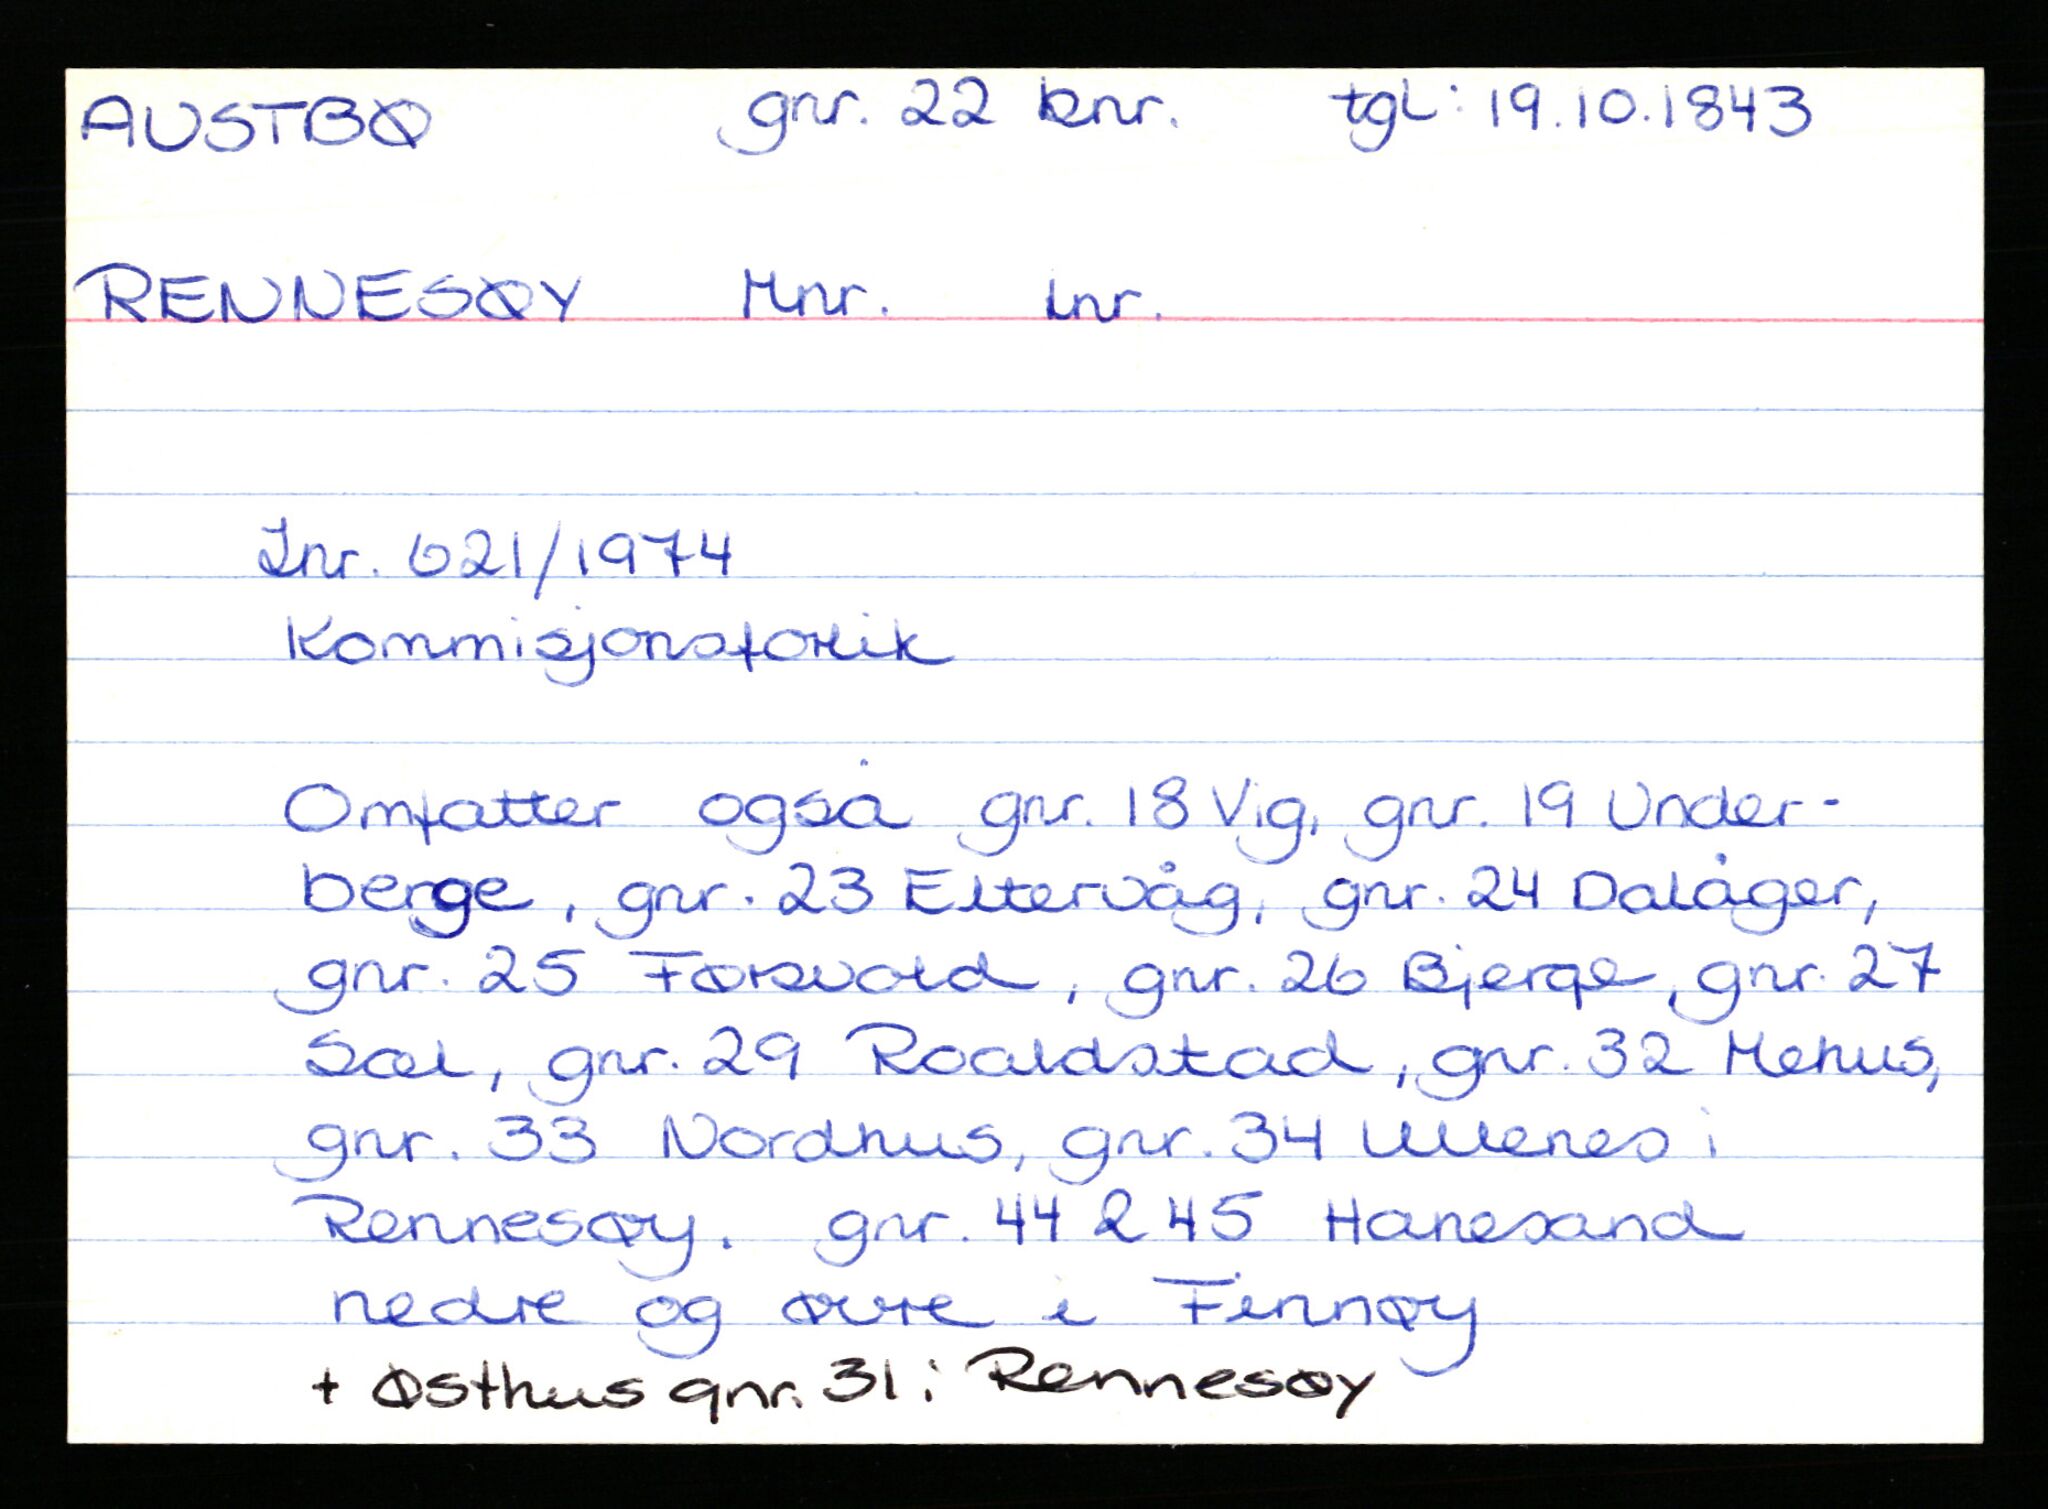 AUSTBØ gnr. 22 bnr. tgl: 19.10.1843
RENNESØY Mnr. Lnr.
Jnr. 621/1974
Kommisjonsforlik
Omfatter også gnr. 18 Vig, gnr. 19 Under-
berge, gnr. 23 Eltervåg, gnr. 24 Dalåger,
gnr. 25 Førsvold, gnr. 26 Bjerge, gnr. 27
Sæl, gnr. 29 Roaldstad, gnr. 32 Mehus,
gnr. 33 Nordhus, gnr. 34 Ullenes i
Rennesøy. gnr. 44 & 45 Hanesand
nedre og øvre i Finnøy
+ Østhus gnr. 31 i Rennesøy